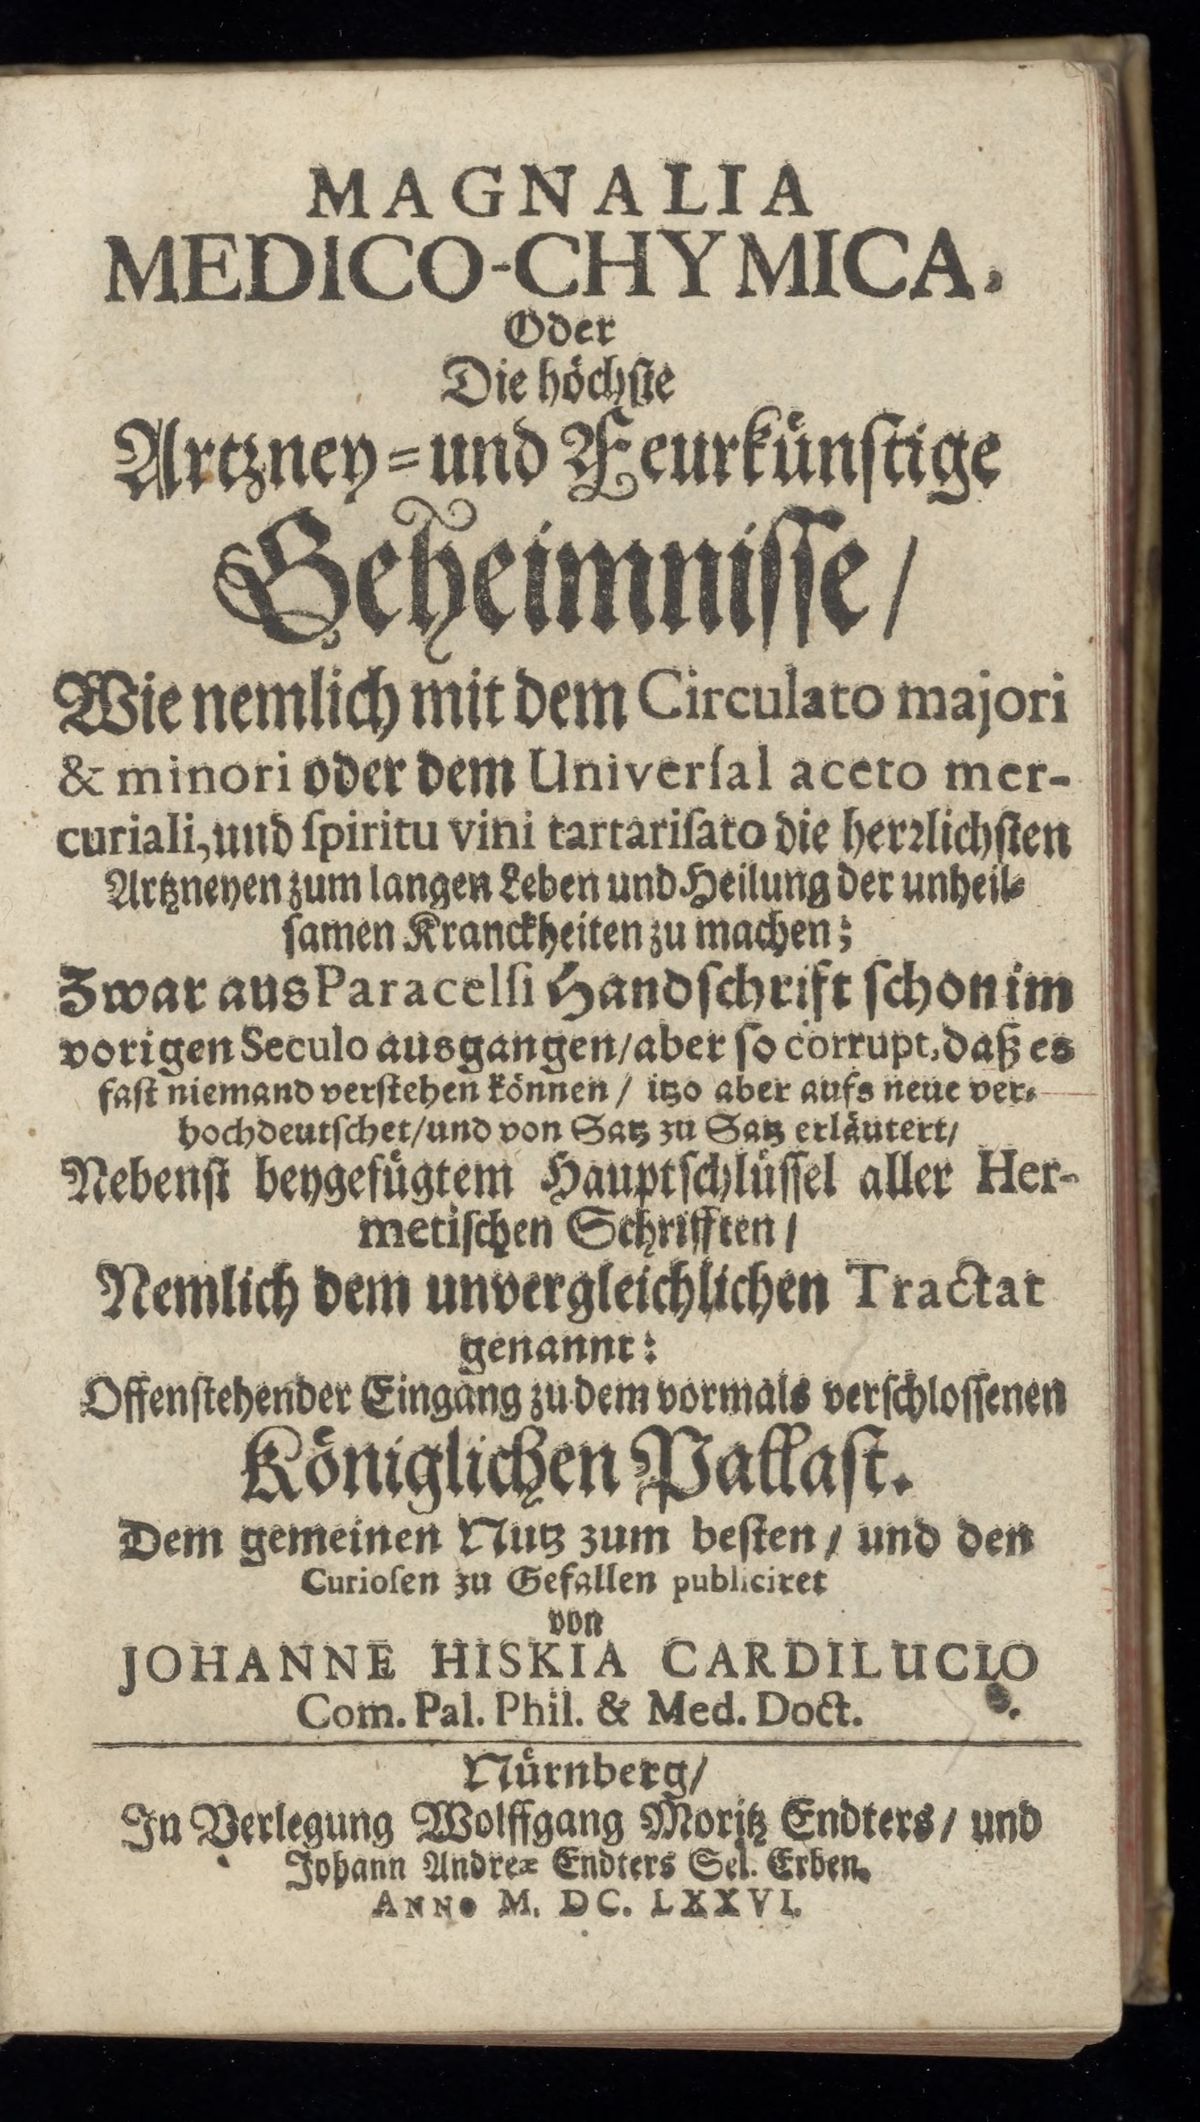 MAGNALIA
MEDICO-CHYMICA.
Oder
Die höchste
Artzney-und Feurkünstige
Geheimnisse/
Wie nemlich mit dem Circulato majori
& minori oder dem Universal aceto mer-
curiali, und spiritu vini tartarisato die herrlichsten
Artzneyen zum langen Leben und Heilung der unheil-
samen Kranckheiten zu machen;
Zwar aus Paracelsi Handschrift schon im
vorigen Seculo ausgangen/aber so corrupt, daß es
fast niemand verstehen können / itzo aber aufs neue ver-
hochdeutschet/und von Satz zu Satz erläutert/
Nebenst beygefügtem Hauptschlüssel aller Her-
metischen Schrifften/
Nemlich dem unvergleichlichen Tractat
genannt:
Offenstehender Eingang zu dem vormals verschlossenen
Königlichen Pallast.
Dem gemeinen Nutz zum besten / und den
Curiosen zu Gefallen publiciret
von
JOHANNE HISKIA CARDILUCIO
Com. Pal. Phil. & Med. Doct.
Nürnberg/
In Verlegung Wolffgang Moritz Endters / und
Johann Andreæ Endters Sel. Erben.
ANNO M. DC. LXXVI.